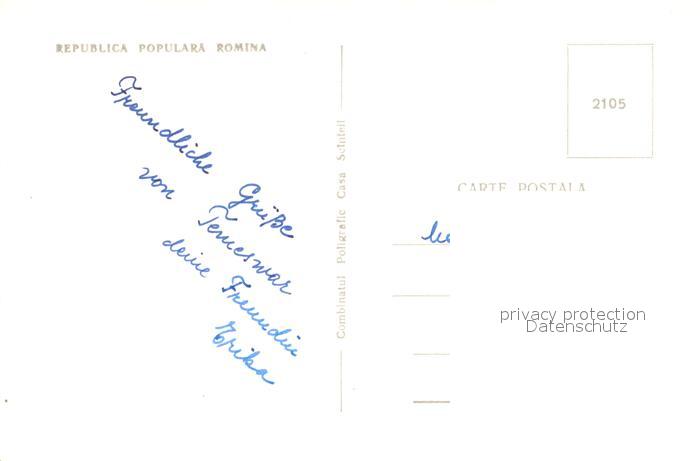 REPUBLICA POPULARĂ ROMINA
Freundliche Grüße
von Temeswar
deine Freundin
Erika
Combinatul Poligrafic Casa Scînteii
2105
CARTE POSTALA
privacy protection
Datenschutz